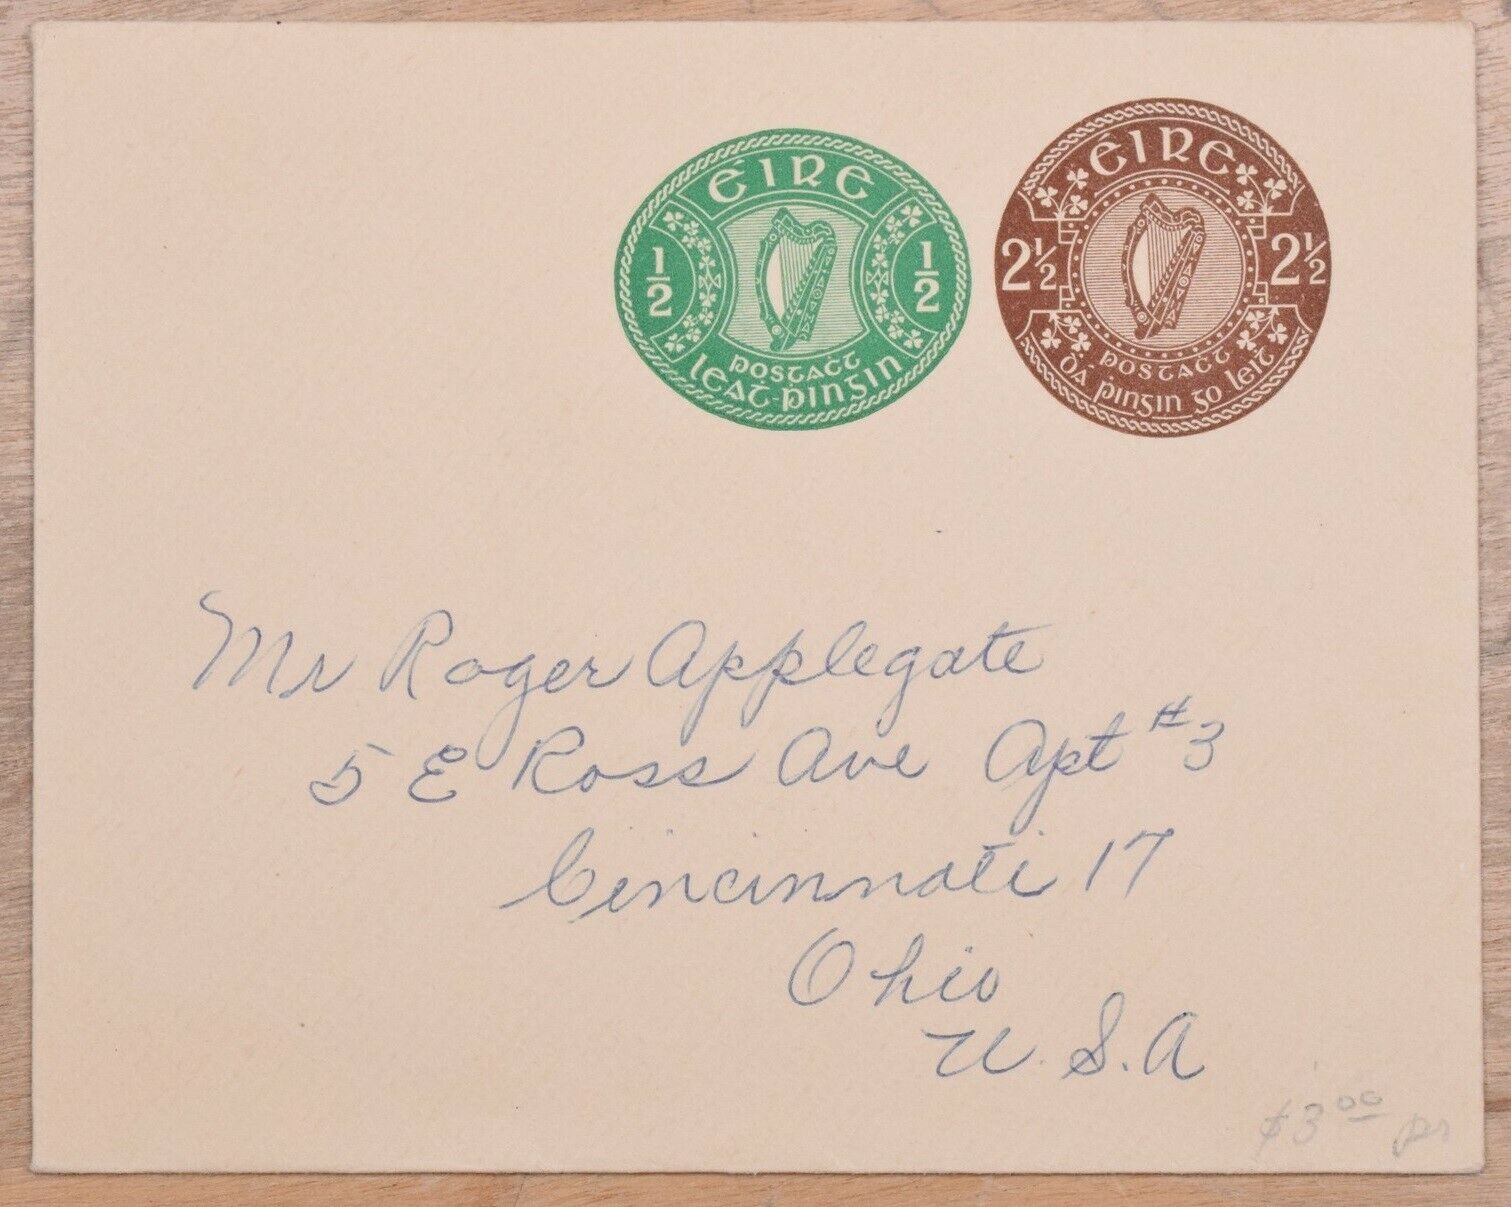 ÉIRE
½ ½
POSTAĊT
LEAṪ-ṖINGIN
ÉIRE
2½ 2½
POSTAĊT
ḊÁ ṖINGIN GO LEIṪ
Mr Roger Applegate
5 E Ross Ave Apt #3
Cincinnati 17
Ohio
U.S.A
$3.00